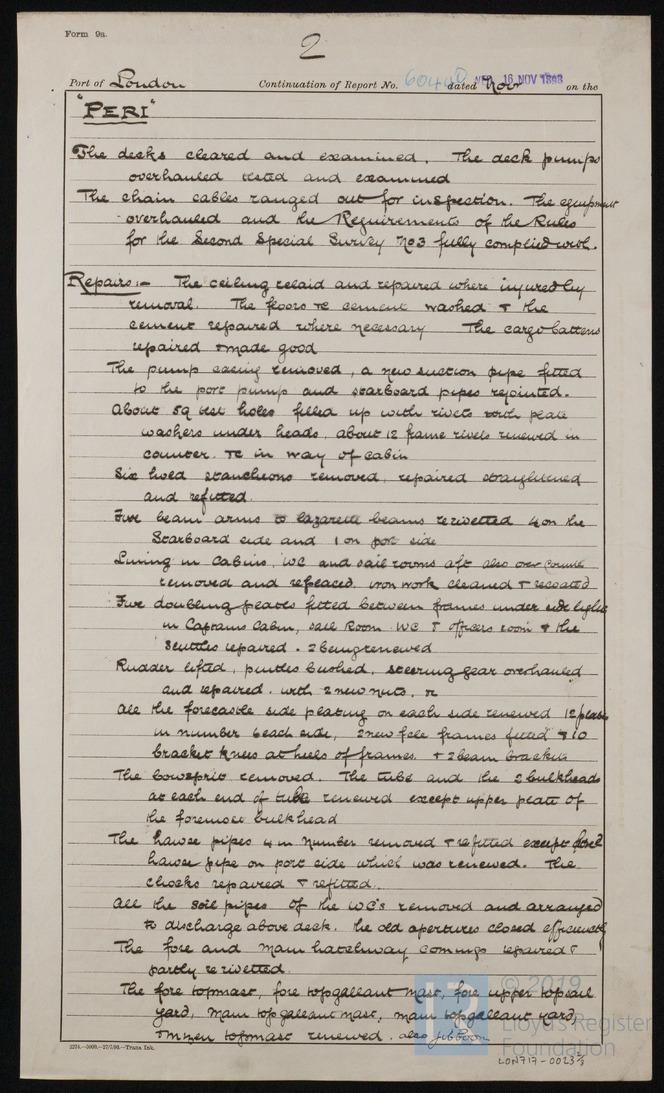 Form 9a.
2
Port of London Continuation of Report No. 60440 dated Nov WED. 16 NOV 1898 on the
"PERI"
The decks cleared and examined. The deck pumps
overhauled tested and examined
The chain cables ranged out for inspection. The equipment
overhauled and the Requirements of the Rules
for the Second Special Survey No3 fully complied with.
Repairs:- The ceiling relaid and repaired where injured by
removal. The floors &c cement washed & the
cement repaired where necessary The cargo battens
repaired & made good
The pump casing removed, a new suction pipe fitted
to the port pump and starboard pipes rejointed.
About 59 test holes filled up with rivets with plate
washers under heads, about 12 frame rivets renewed in
counter. &c in way of cabin
Six hold stancheons removed, repaired straightened
and refitted.
Five beam arms to lazarette beams rerivetted 4 on the
Starboard side and 1 on port side
Lining in Cabins, WC and sail rooms aft also over
removed and replaced. iron work cleaned & recoated
Five doubling plates fitted between frames under side lights
in Captains Cabin, sail Room WC & officers room & the
Scuttles repaired. 2 being renewed
Rudder lifted, pintles bushed, steering gear overhauled
and repaired. with 2 new nuts. &c
All the forecastle side plating on each side renewed 12 plates
in number 6 each side, 2 new fcle frames fitted & 10
bracket knees at heels of frames. & 2 beam brackets
The bowsprit removed. The tube and the 2 bulkheads
at each end of tube renewed except upper plate of
the foremost bulkhead
The hawse pipes 4 in number removed & refitted except
hawse pipe on port side which was renewed. The
chocks repaired & refitted.
All the soil pipes of the WC's removed and arranged
to discharge above deck. the old apertures closed efficiently
The fore and Main hatchway comings repaired &
partly rerivetted.
The fore topmast, fore topgallant mast, fore upper topsail
yard, Main topgallant mast, main topgallant yard,
& mizen topmast renewed. also jibboom
2274.—5000.—27/7/98.—Trans Ink.
© 2019
Lloyd's Register
Foundation
LON717-0023 2/3